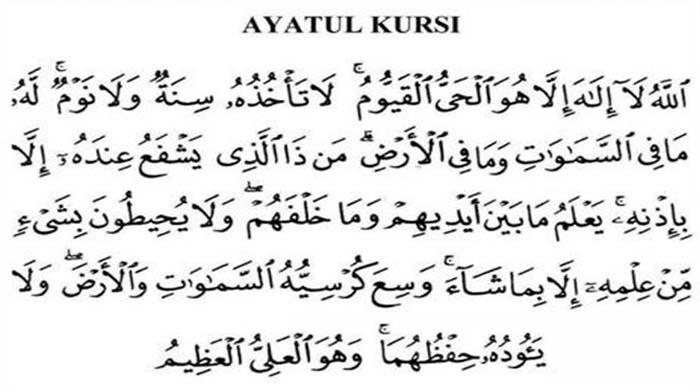 AYATUL KURSI
ٱللَّهُ لَآ إِلَٰهَ إِلَّا هُوَ ٱلْحَىُّ ٱلْقَيُّومُ ۚ لَا تَأْخُذُهُۥ سِنَةٌ وَلَا نَوْمٌ ۚ لَّهُۥ
مَا فِى ٱلسَّمَٰوَٰتِ وَمَا فِى ٱلْأَرْضِ ۗ مَن ذَا ٱلَّذِى يَشْفَعُ عِندَهُۥٓ إِلَّا
بِإِذْنِهِۦ ۚ يَعْلَمُ مَا بَيْنَ أَيْدِيهِمْ وَمَا خَلْفَهُمْ ۖ وَلَا يُحِيطُونَ بِشَىْءٍ
مِّنْ عِلْمِهِۦٓ إِلَّا بِمَا شَآءَ ۚ وَسِعَ كُرْسِيُّهُ ٱلسَّمَٰوَٰتِ وَٱلْأَرْضَ ۖ وَلَا
يَـُٔودُهُۥ حِفْظُهُمَا ۚ وَهُوَ ٱلْعَلِىُّ ٱلْعَظِيمُ